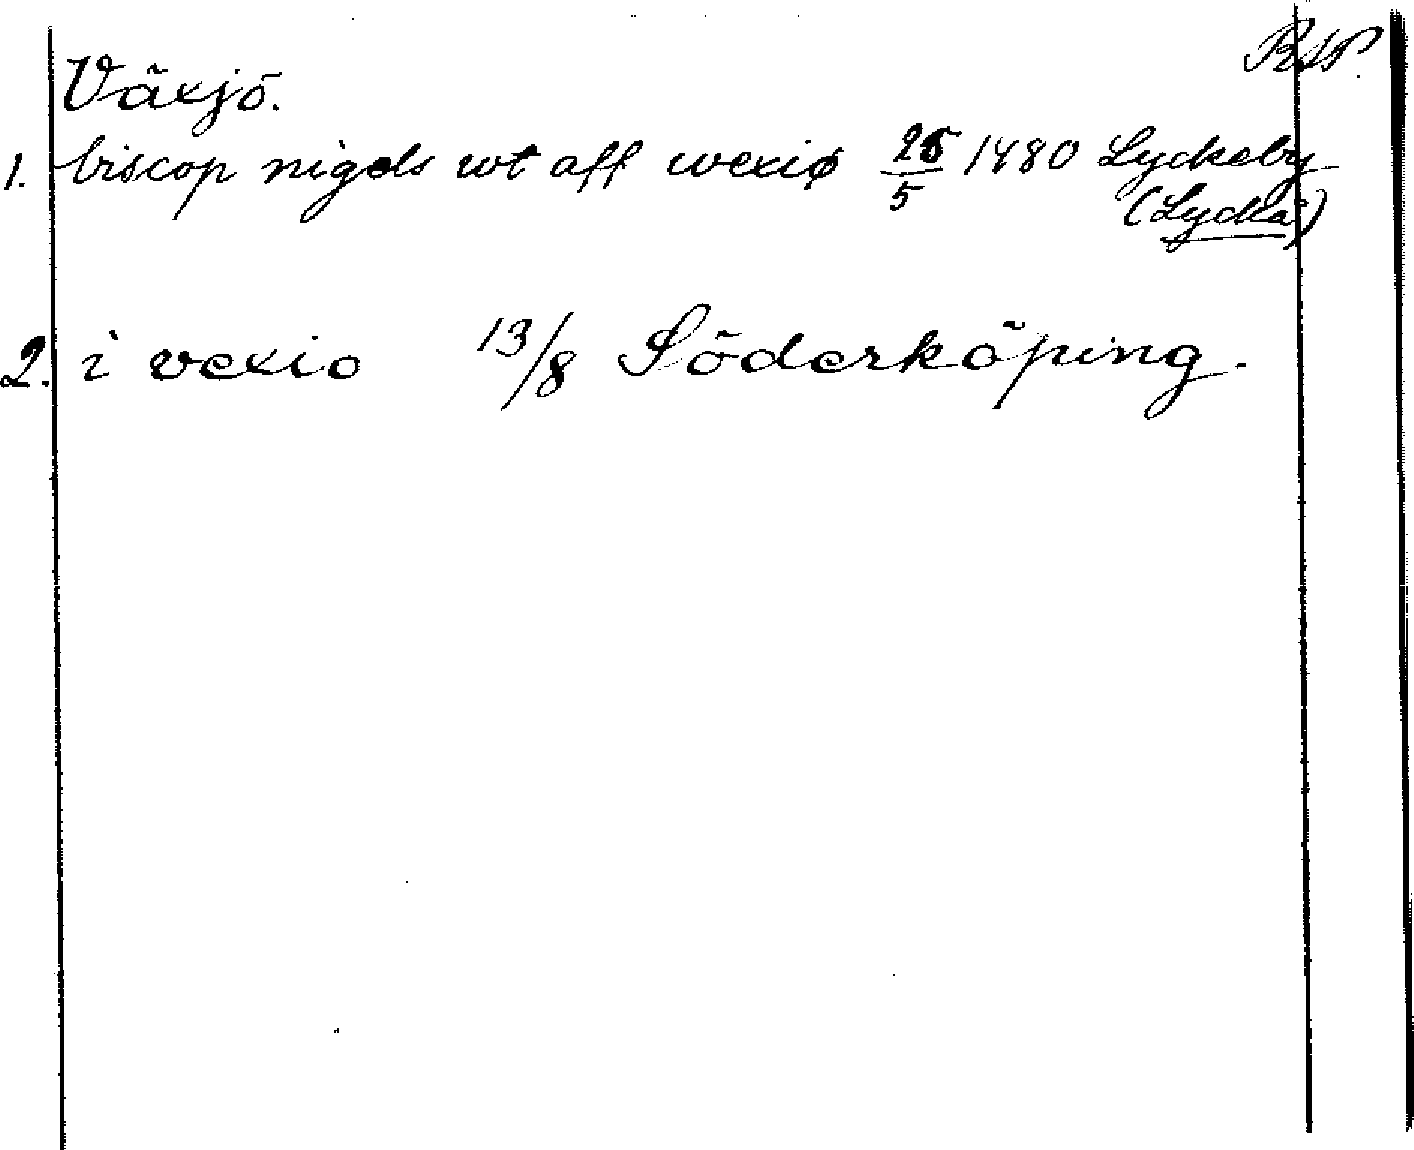 Växjö.
1. biscop nigels wt aff wexiø 25/5 1480 Lyckeby
(Lyckå)
2. i vexio 13/8 Söderköping.